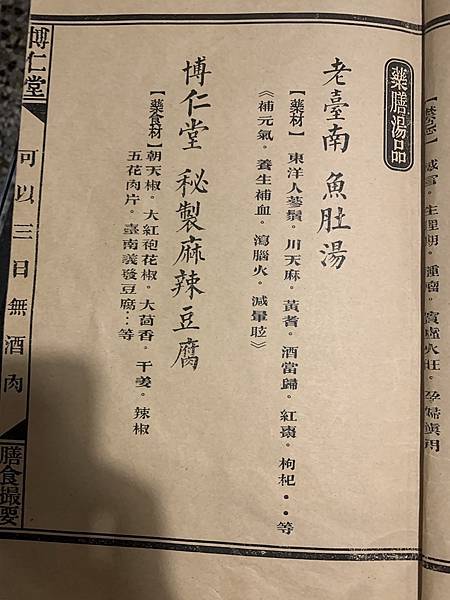 【禁忌】感冒．生理期．腫瘤．實虛火旺．孕婦慎用
藥膳湯品
老臺南 魚肚湯
【藥材】 東洋人蔘鬚．川天麻．黃耆．酒當歸．紅棗．枸杞．．等
《補元氣．養生補血．瀉腦火．減暈眩》
博仁堂 秘製麻辣豆腐
【藥食材】朝天椒．大紅袍花椒．大茴香．干姜．辣椒
五花肉片．臺南義發豆腐…等
博仁堂
可以三日無酒肉
膳食撮要